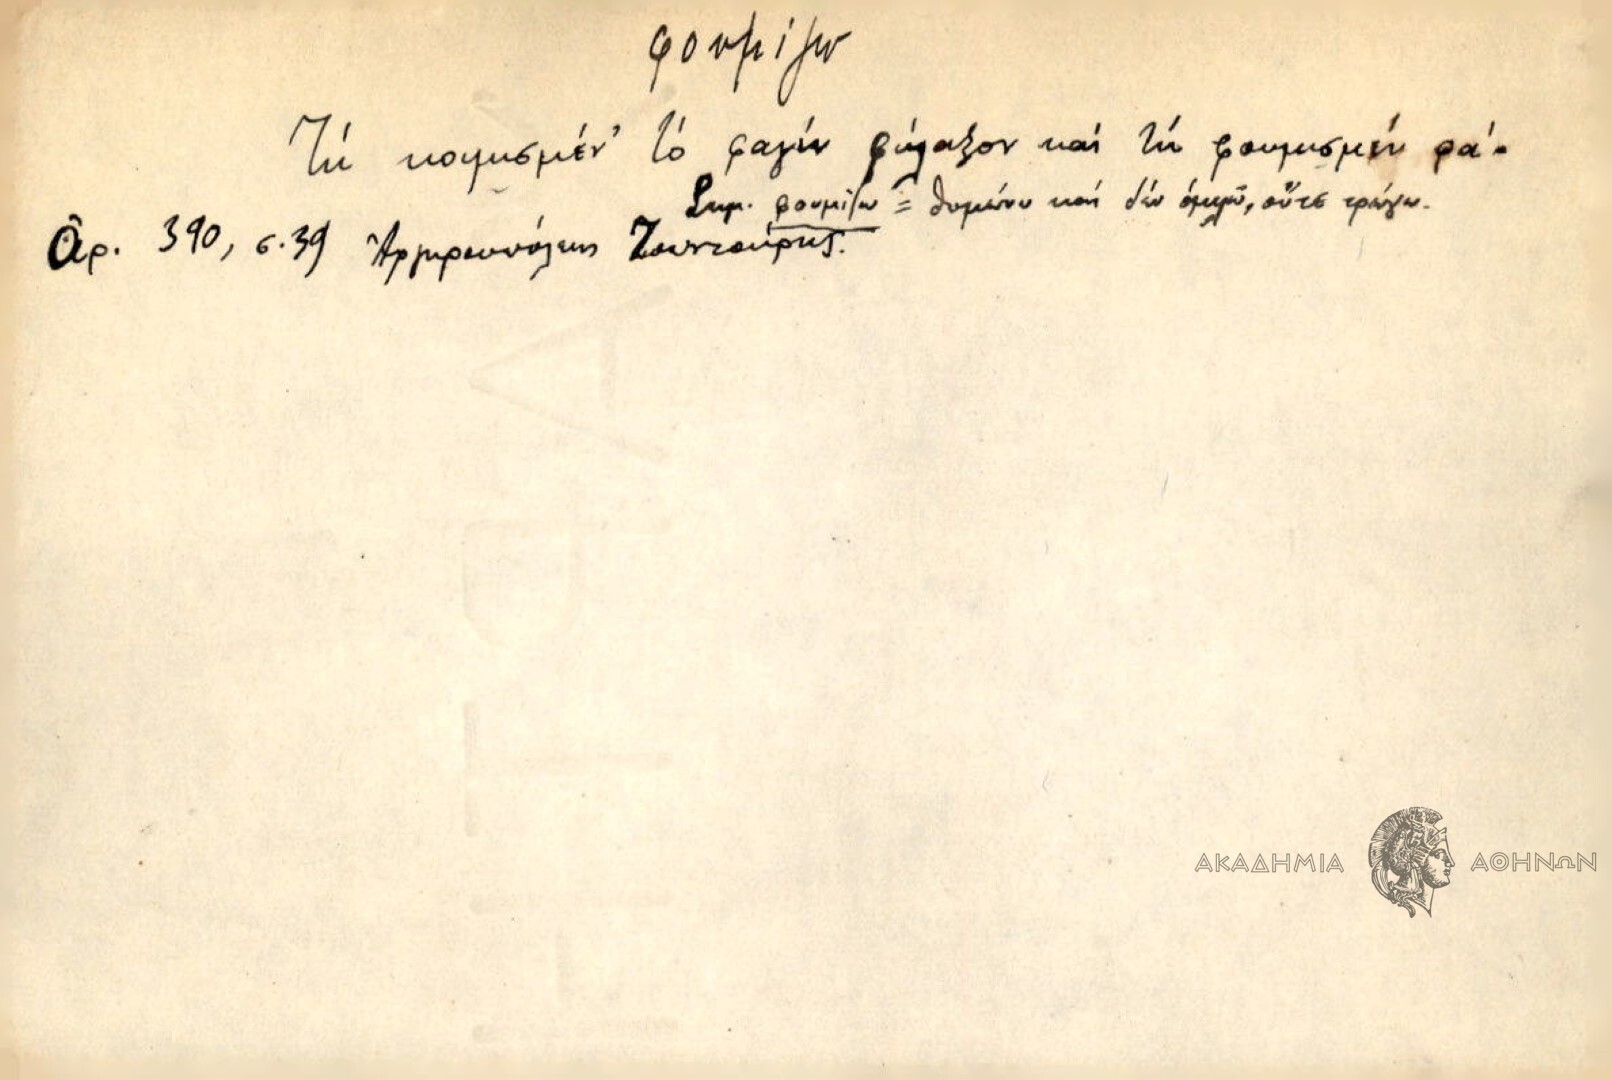 φουμίζω
Τή κοιμισμέν' τὸ φαγίν φύλαξον καί τή φουμισμέν φά.
Σημ. φουμίζω = θυμώνω καί δέν ὁμιλῶ, οὔτε τρώγω.
Ἀρ. 390, σ. 39 Ἀργυρουπόλεως
ΑΚΑΔΗΜΙΑ ΑΘΗΝΩΝ